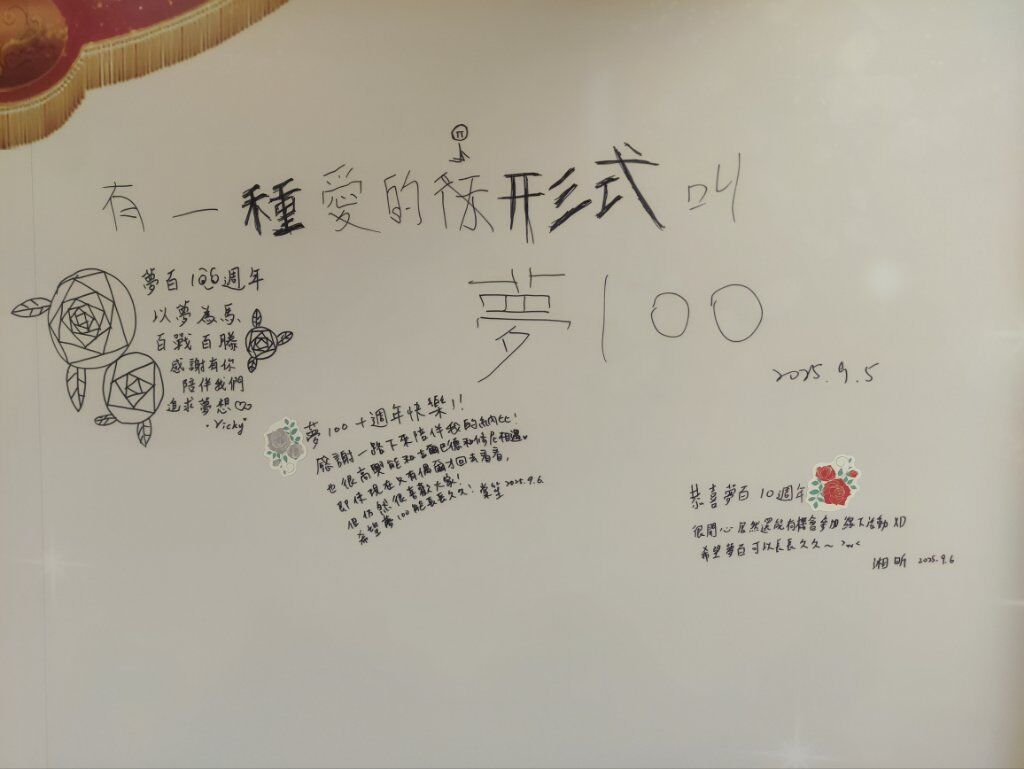 有一種愛的形式叫
夢100
2025.9.5
夢百100週年
以夢為馬
百戰百勝
感謝有你
陪伴我們
追求夢想♡♡
·Vicky·
夢100十週年快樂!!
感謝一路下來陪伴我的納比!
也很高興能和吉爾巴德和修尼相遇。
即使現在久有偶爾才回去看看,
但仍然很喜歡大家!
希望夢100能長長久久! 2025.9.6.
恭喜夢百10週年
很開心居然還能有機會參加線下活動XD
希望夢百可以長長久久~
湘昕 2025.9.6